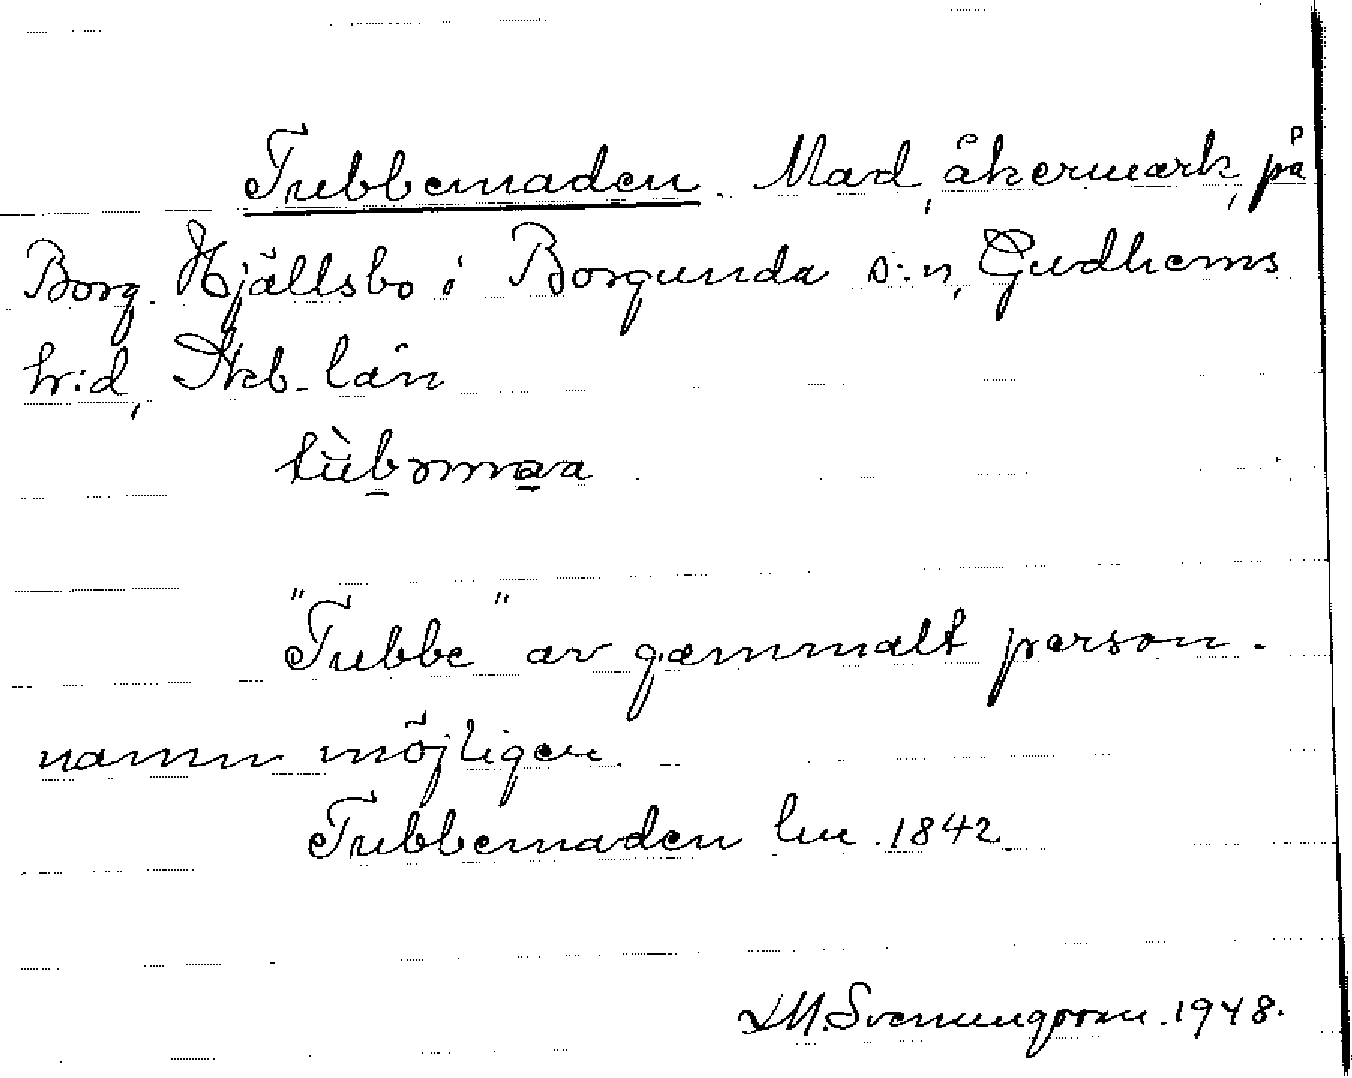 Tubbemaden. Mad, åkermark, på
Borg. Hjällsbo i Borgunda s:n, Gudhems
hr:d, Skb. län
"Tubbe" av gammalt person-
namn möjligen.
Tubbemaden lm. 1842
LM. Svenungsson. 1948.